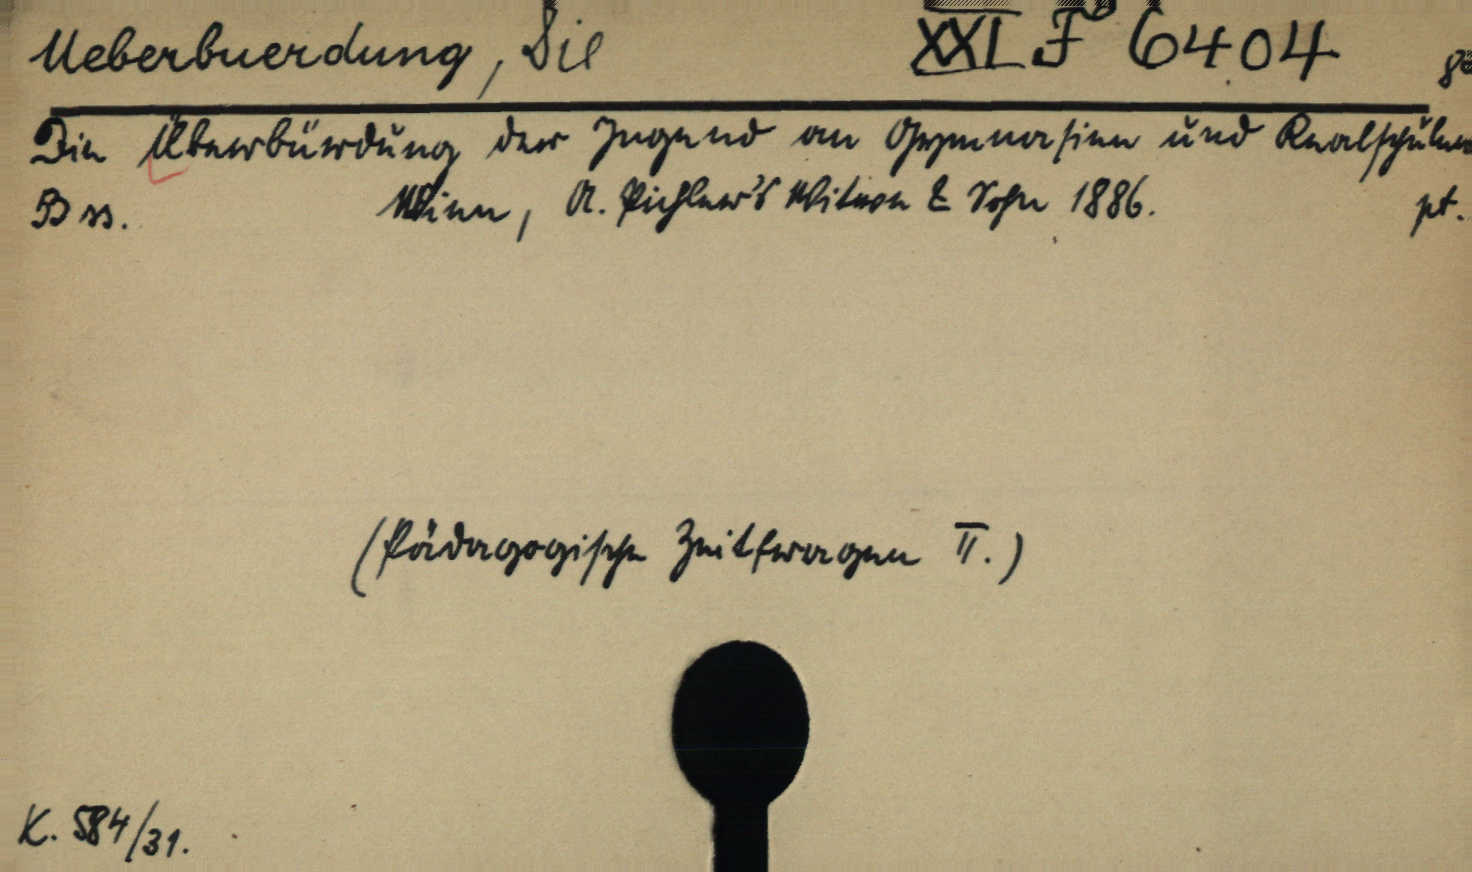 Ueberbuerdung, Die XXL F 6404 8°
Die Überbürdung der Jugend an Gymnasien und Realschulen
Wien, A. Pichler's Witwe & Sohn 1886. pt.
(Pädagogische Zeitfragen II.)
K. 584/31.